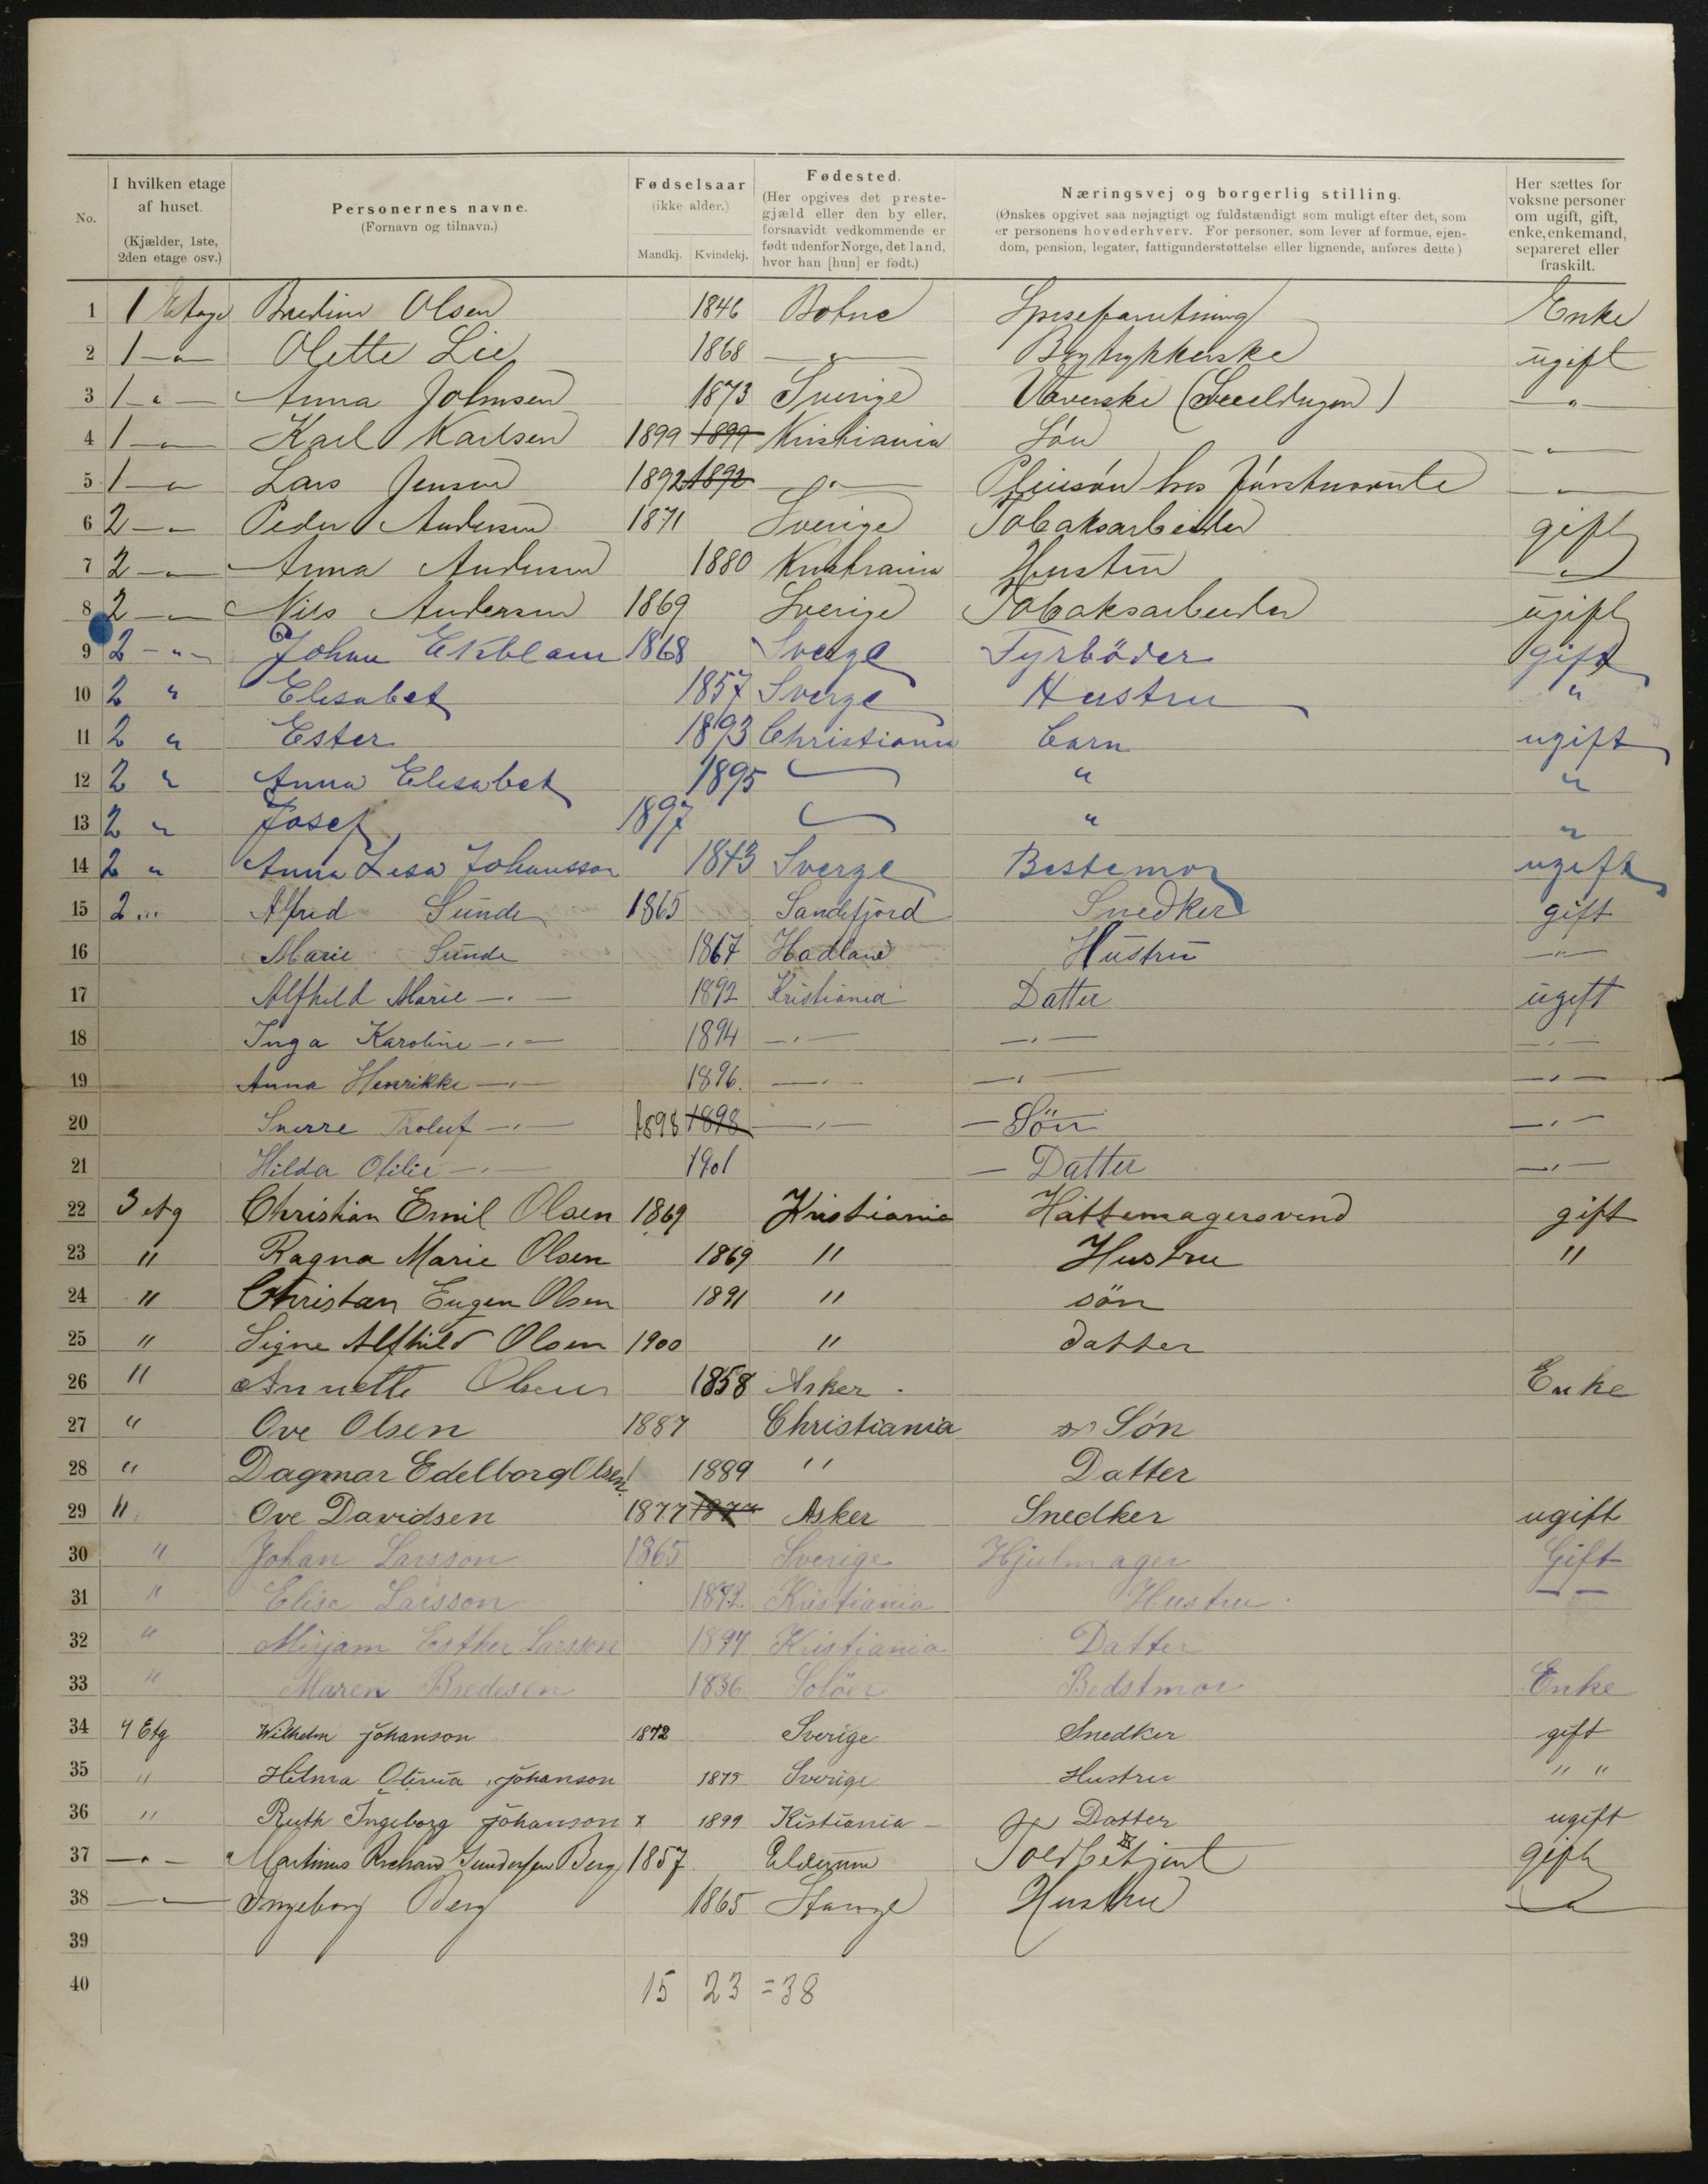 No.
I hvilken etage
af huset.
(Kjælder, 1ste,
2den etage osv.)
Personernes navne.
(Fornavn og tilnavn.)
Fødselsaar
(ikke alder.)
Mandkj. Kvindekj.
Fødested.
(Her opgives det preste-
gjæld eller den by eller,
forsaavidt vedkommende er
født udenfor Norge, det land,
hvor han [hun] er født.)
Næringsvej og borgerlig stilling.
(Ønskes opgivet saa nøjagtigt og fuldstændigt som muligt efter det, som
er personens hovederhverv. For personer, som lever af formue, ejen-
dom, pension, legater, fattigunderstøttelse eller lignende, anføres dette)
Her sættes for
voksne personer
om ugift, gift,
enke, enkemand,
separeret eller
fraskilt.
1 1 Etage Olsen 1846 Botne Enke
2 1 — " — Olette Lie 1868 — " — ugift
3 1 — " — Anna Johnsen 1873 Sverige Væverske — " —
4 1 — " — Karl Karlsen 1899 1899 Kristiania Søn — " —
5 1 — " — Lars Jensen 1892 1892 — " — Pleiesøn hos — " —
6 2 — " — Peder Andersen 1871 Sverige Tobaksarbeider gift
7 2 — " — Anna Andersen 1880 Kristiania Hustru — " —
8 2 — " — Nils Andersen 1869 Sverige Tobaksarbeider ugift
9 2 — " — Johan Ekblam 1868 Sverge Fyrböder gift
10 2 " Elisabet 1857 Sverge Hustru "
11 2 " Ester 1893 Christiania barn ugift
12 2 " Anna Elisabet 1895 " "
13 2 " Josef 1897 " "
14 2 " Anna Lisa Johansson 1843 Sverge Bestemor ugift
15 2 " Alfred Sunde 1865 Sandefjord Snedker gift
16 Marie Sunde 1867 Hadland Hustru — " —
17 Alfhild Marie — " — 1892 Kristiania Datter ugift
18 Inga Karoline — " — 1894 — " — — " — — " —
19 Anna Henrikke — " — 1896. — " — — " — — " —
20 Snerre — " — 1898 1898 — " — — Sön — " —
21 Hilda Otilie — " — 1901 — Datter — " —
22 3 etg Christian Emil Olsen 1869 Kristiania Hattemagersvend gift
23 " Ragna Marie Olsen 1869 " Hustru "
24 " Christan Eugen Olsen 1891 " sön
25 " Signe Alfhild Olsen 1900 " datter
26 " Annette Olsen 1858 Asker. Enke
27 " Ove Olsen 1887 Christiania Søn
28 " Dagmar Edelborg Olsen. 1889 " Datter
29 " Ove Davidsen 1877 1877 Asker Snedker ugift
30 " Johan Larsson 1865 Sverige Hjulmager Gift
31 " Elise Larsson 1872 Kristiania Hustru. — —
32 " Mirjam Esther Larsson 1897 Kristiania Datter
33 " Maren Bredesen 1836 Solöer Bedstmor Enke
34 4 Etg Wilhelm Johanson 1872 Sverige Snedker gift
35 " Hilma Olivia Johanson 1875 Sverige Hustru " "
36 " Ruth Ingeborg Johanson x 1899 Kistiania — Datter ugift
37 — " — Martinus Richard Gundersen Berg 1857 Elverum Toldbetjent gift
38 — " — Ingeborg Berg 1865 Stange Hustru — " —
39
40 15 23 = 38